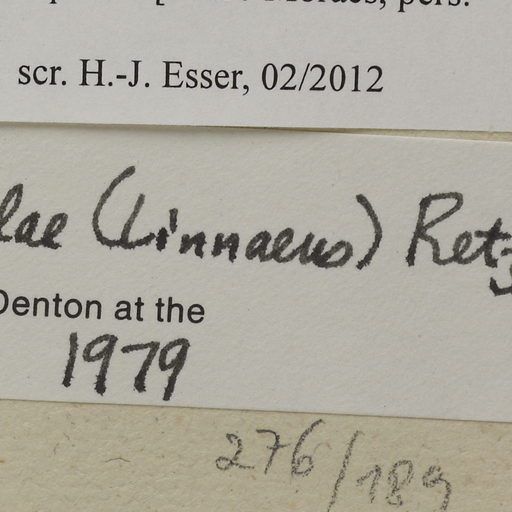 scr. H.-J. Esser, 02/2012
lae (Linnaeus) Retz
Denton at the
1979
276/189